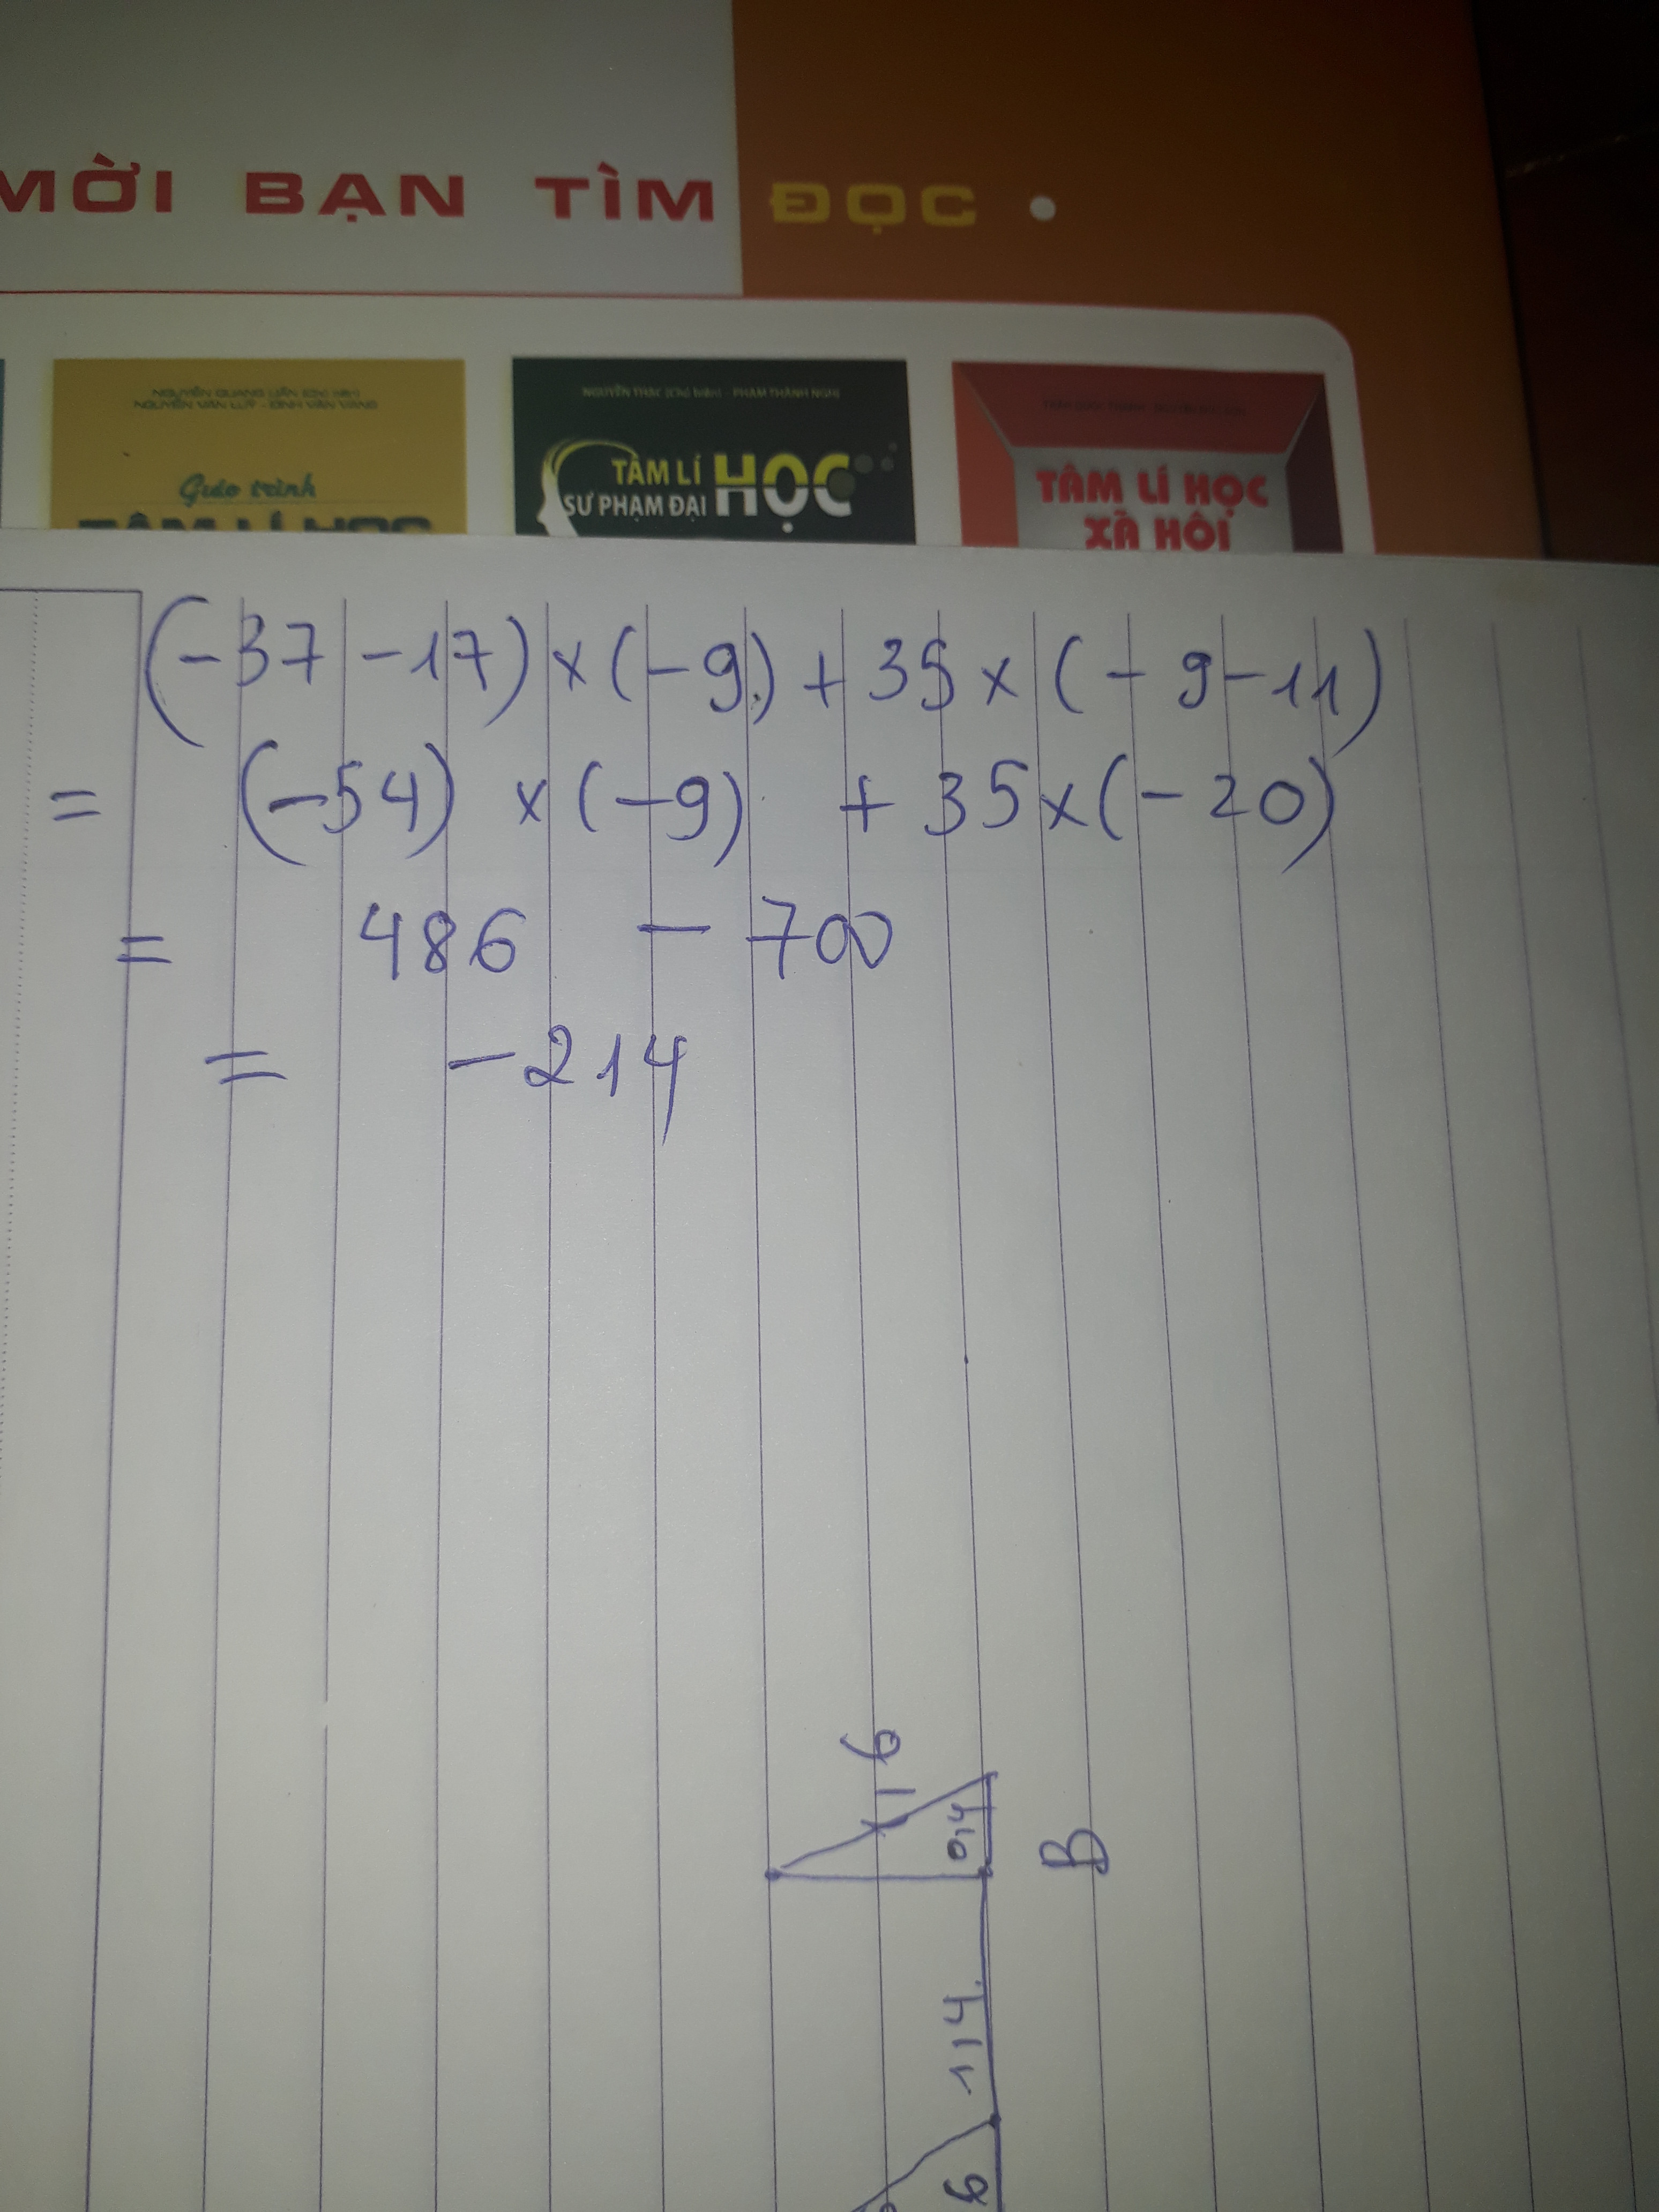 MỜI BẠN TÌM ĐỌC •
NGUYỄN VĂN LUỸ - ĐINH VĂN VANG
Giáo trình
TÂM LÍ HỌC
NGUYỄN THẠC (Chủ biên) - PHẠM THÀNH NGHỊ
TÂM LÍ HỌC
SƯ PHẠM ĐẠI
TÂM LÍ HỌC
XÃ HỘI
(-37 -17) × (-9) + 35 × (- 9 - 11)
= (-54) × (-9) + 35 × (-20)
= 486 - 700
= - 214
1,6
0,4
B
1,4
6